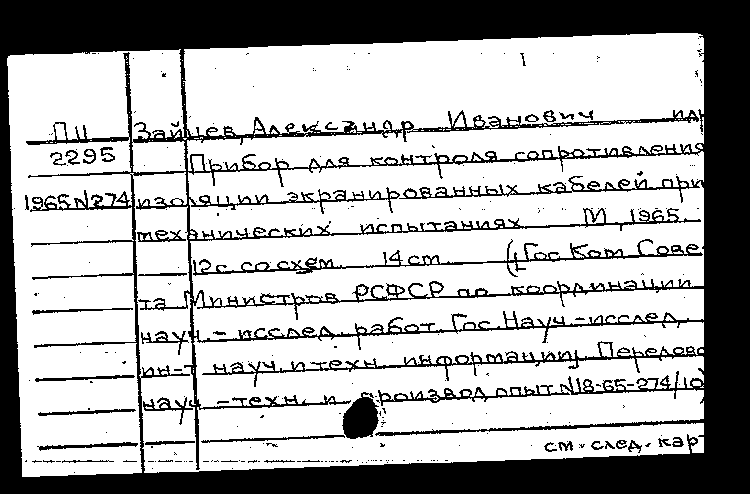 ПII Зайцев, Александр Иванович и др
2295 Прибор для контроля сопротивления
1965 N274 изоляции экранированных кабелей при
механических испытаниях М, 1965
12с. со схем. 14 cm. (Гос Ком Сове-
та Министров РСФСР по координации
науч.-исслед. работ. Гос. Науч-исслед.
ин-т науч. и техн. информации. Передово
науч.-техн. и производ опыт N18-65-274/10)
см. след. карт